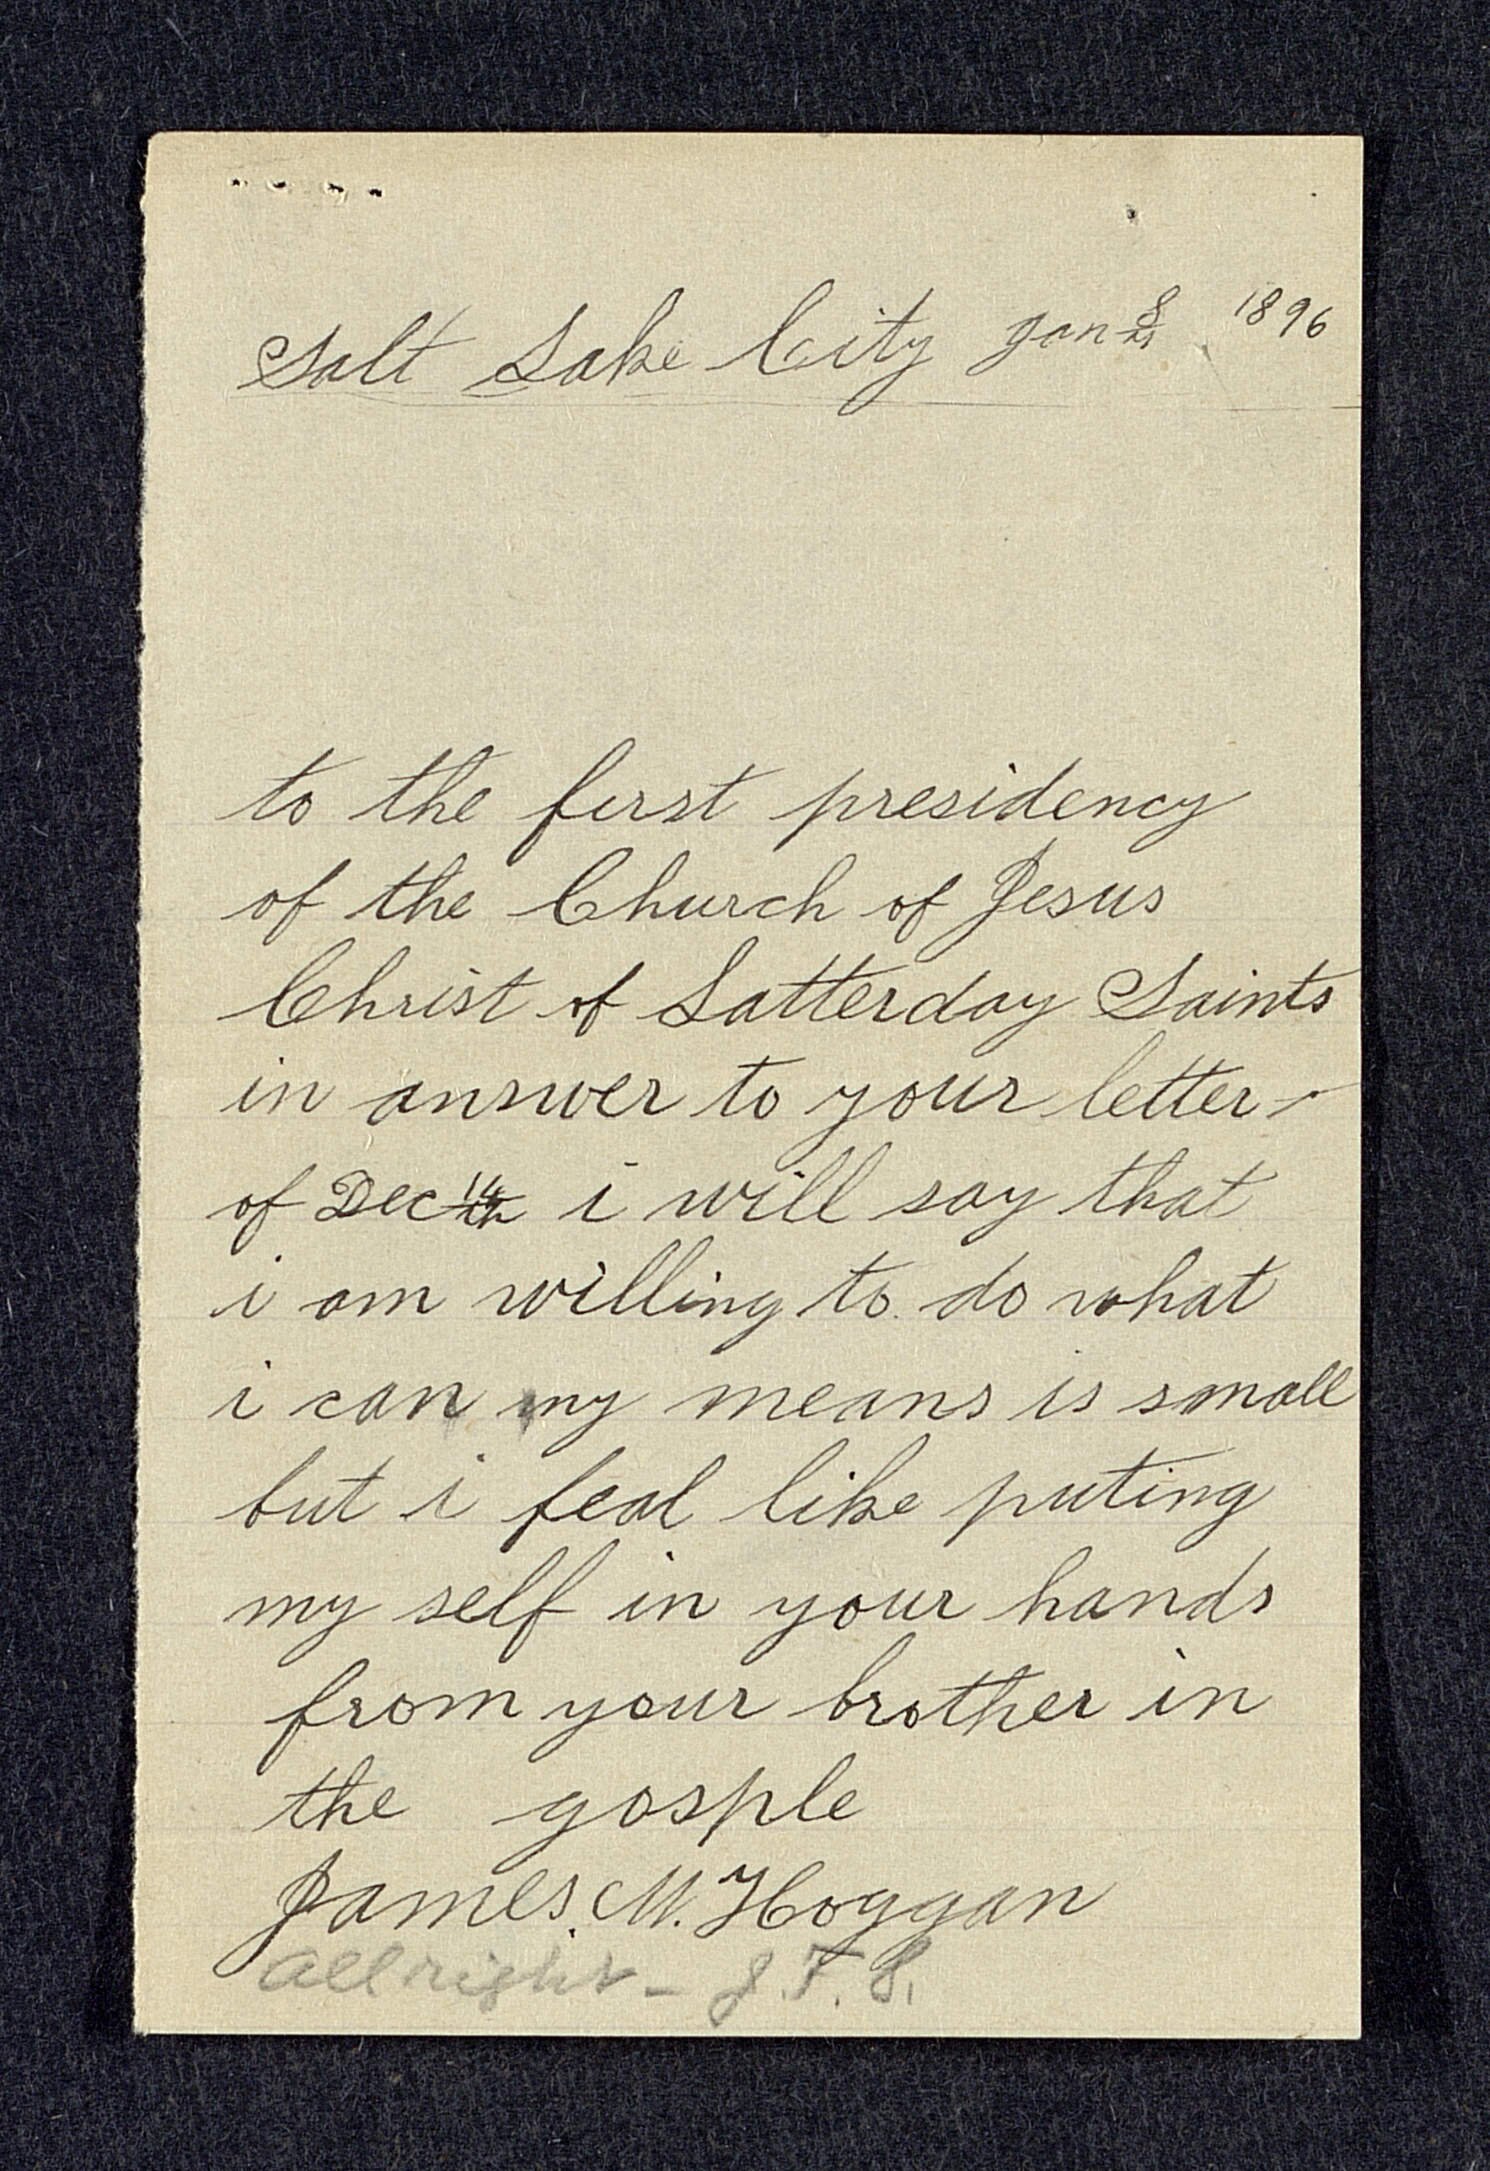 Salt Lake City Jan 8 1896
to the first presidency
of the Church of Jesus
Christ of Latterday Saints
in answer to your letter
of Dec 14th i will say that
i am willing to do what
i can my means is small
but i feal like puting
my self in your hands
from your brother in
the gosple
James. M. Hoggan
All right - J. F. S.